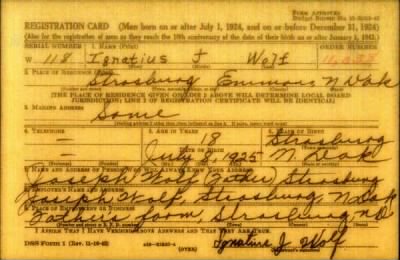 FORM APPROVED
REGISTRATION CARD (Men born on or after July 1, 1924, and on or before December 31, 1924)
(Also for the registration of men as they reach the 18th anniversary of the date of their birth on or after January 1, 1943.)
SERIAL NUMBER 1. NAME (Print) ORDER NUMBER
W 118 Ignatius J Wolf
2. PLACE OF RESIDENCE (Print)
Strasburg Emmons N Dak
(THE PLACE OF RESIDENCE GIVEN ON LINE 2 ABOVE WILL DETERMINE LOCAL BOARD
JURISDICTION; LINE 2 OF REGISTRATION CERTIFICATE WILL BE IDENTICAL)
3. MAILING ADDRESS
Same
4. TELEPHONE 5. AGE IN YEARS 6. PLACE OF BIRTH
18 Strasburg
DATE OF BIRTH
1925 N Dak
7. NAME AND ADDRESS OF PERSON WHO WILL ALWAYS KNOW YOUR ADDRESS
Joseph J. Wolf (Father) Strasburg
8. EMPLOYER'S NAME AND ADDRESS
Joseph Wolf, Strasburg, N Dak
9. PLACE OF EMPLOYMENT OR BUSINESS
Father's farm, Strasburg, N D
I AFFIRM THAT I HAVE VERIFIED ABOVE ANSWERS AND THAT THEY ARE TRUE.
DSS Form 1 (Rev. 11-16-42) (OVER) Ignatius J Wolf